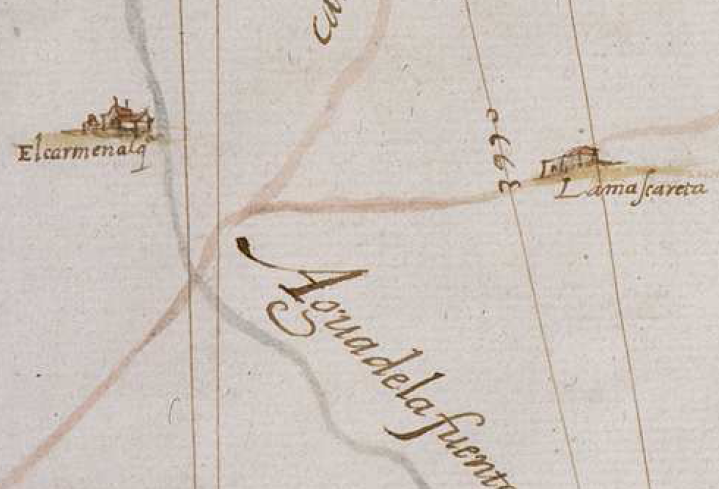 Elcarmenalq
Lamascareta
Aguadelafuente